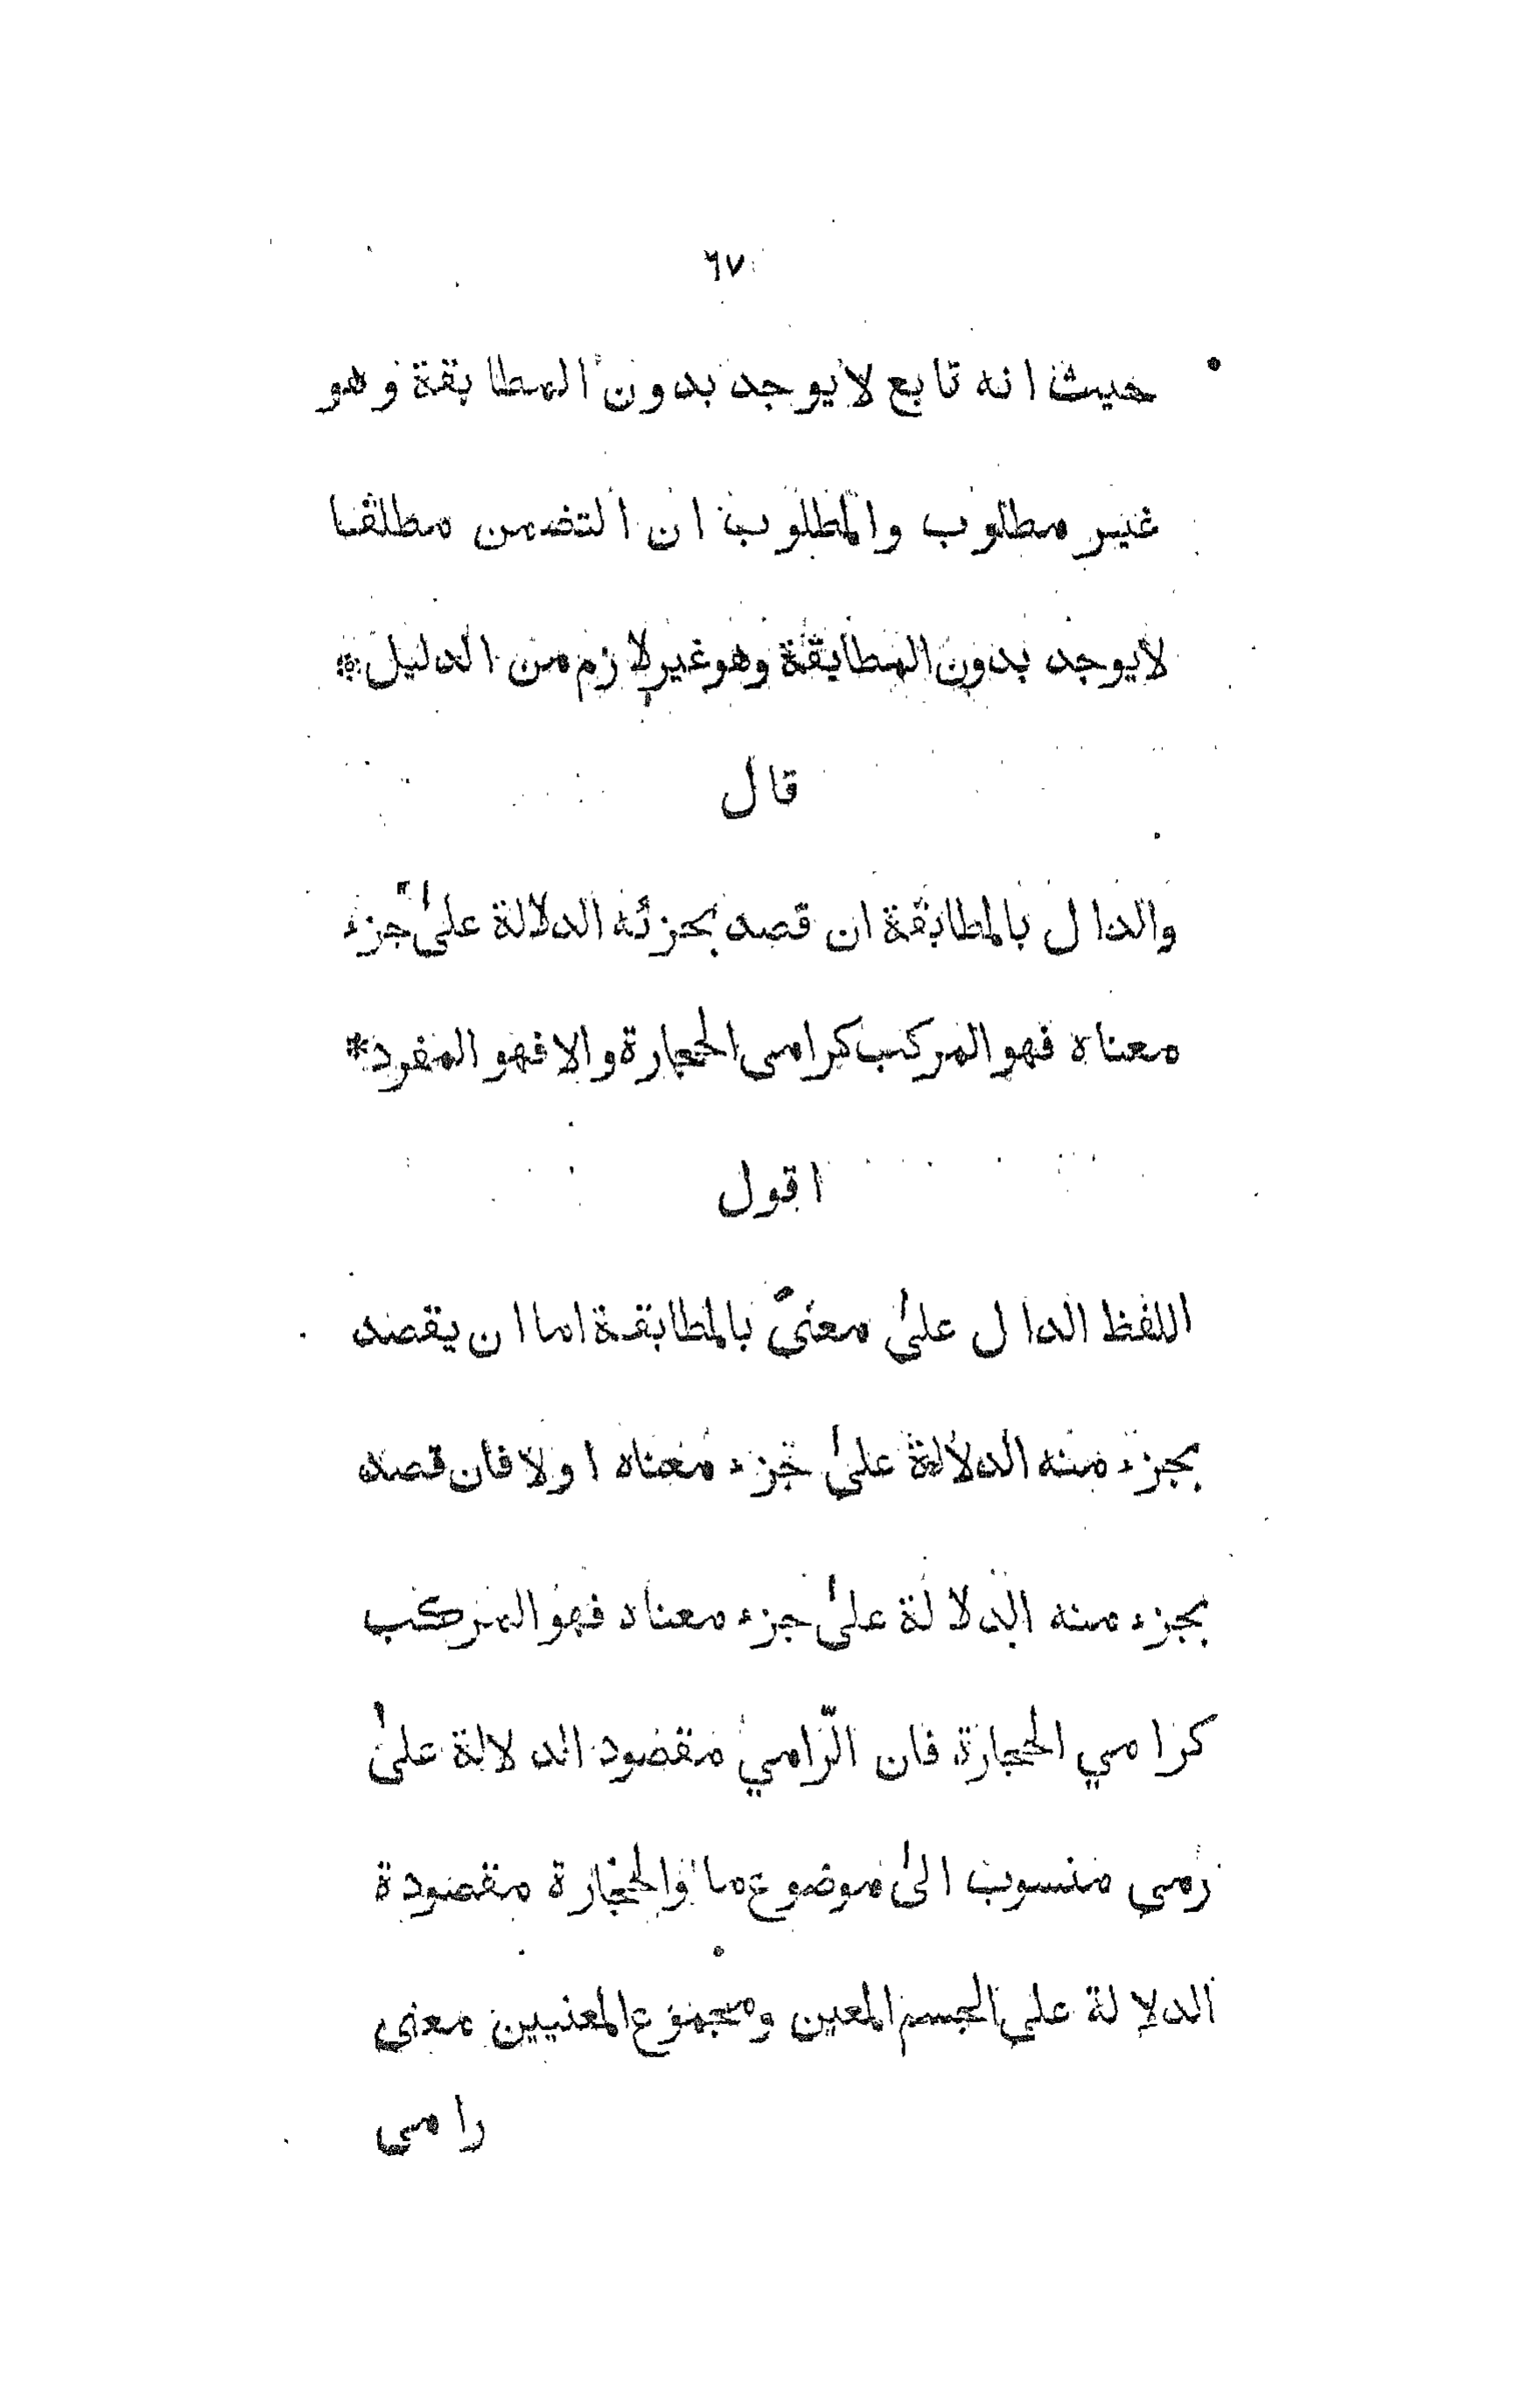 ٦٧
حيث انه تابع لايوجد بدون المطابقة وهو
غير مطلوب والمطلوب ان التضمن مطلقا
لايوجد بدون المطابقة وهوغير لازم من الدليل *
قال
والدال بالمطابقة ان قصد بجزئه الدلالة على جزء
معناه فهو المركب كرامى الحجارة والا فهو المفرد *
اقول
اللفظ الدال على معنىً بالمطابقة اما ان يقصد
بجزء منه الدلالة على جزء معناه اولا فان قصد
بجزء منه الدلالة على جزء معناه فهو المركب
كرامي الحجارة فان الرّامي مقصود الدلالة على
رمى منسوب الى موضوع ما والحجارة مقصودة
الدلالة على الجسم المعين ومجموع المعنيين معنى
رامى